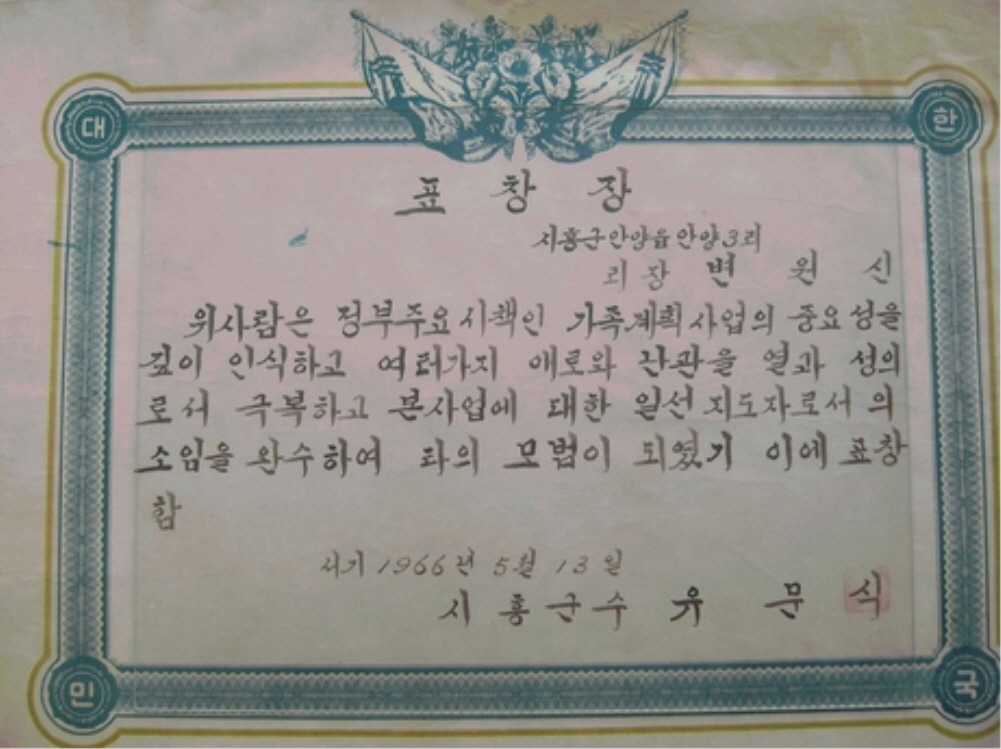 대 한
표 창 장
시흥군안양읍안양3리
리장 변 원 신
위사람은 정부주요시책인 가족계획사업의 중요성을
깊이 인식하고 여러가지 애로와 난관을 열과 성의
로서 극복하고 본사업에 대한 일선지도자로서의
소임을 완수하여 타의 모법이 되였기 이에 표창
함
서기 1966년 5월 13일
시흥군수 유 문 식
민 국